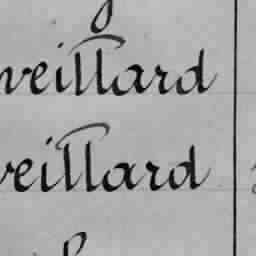 veillard
veillard